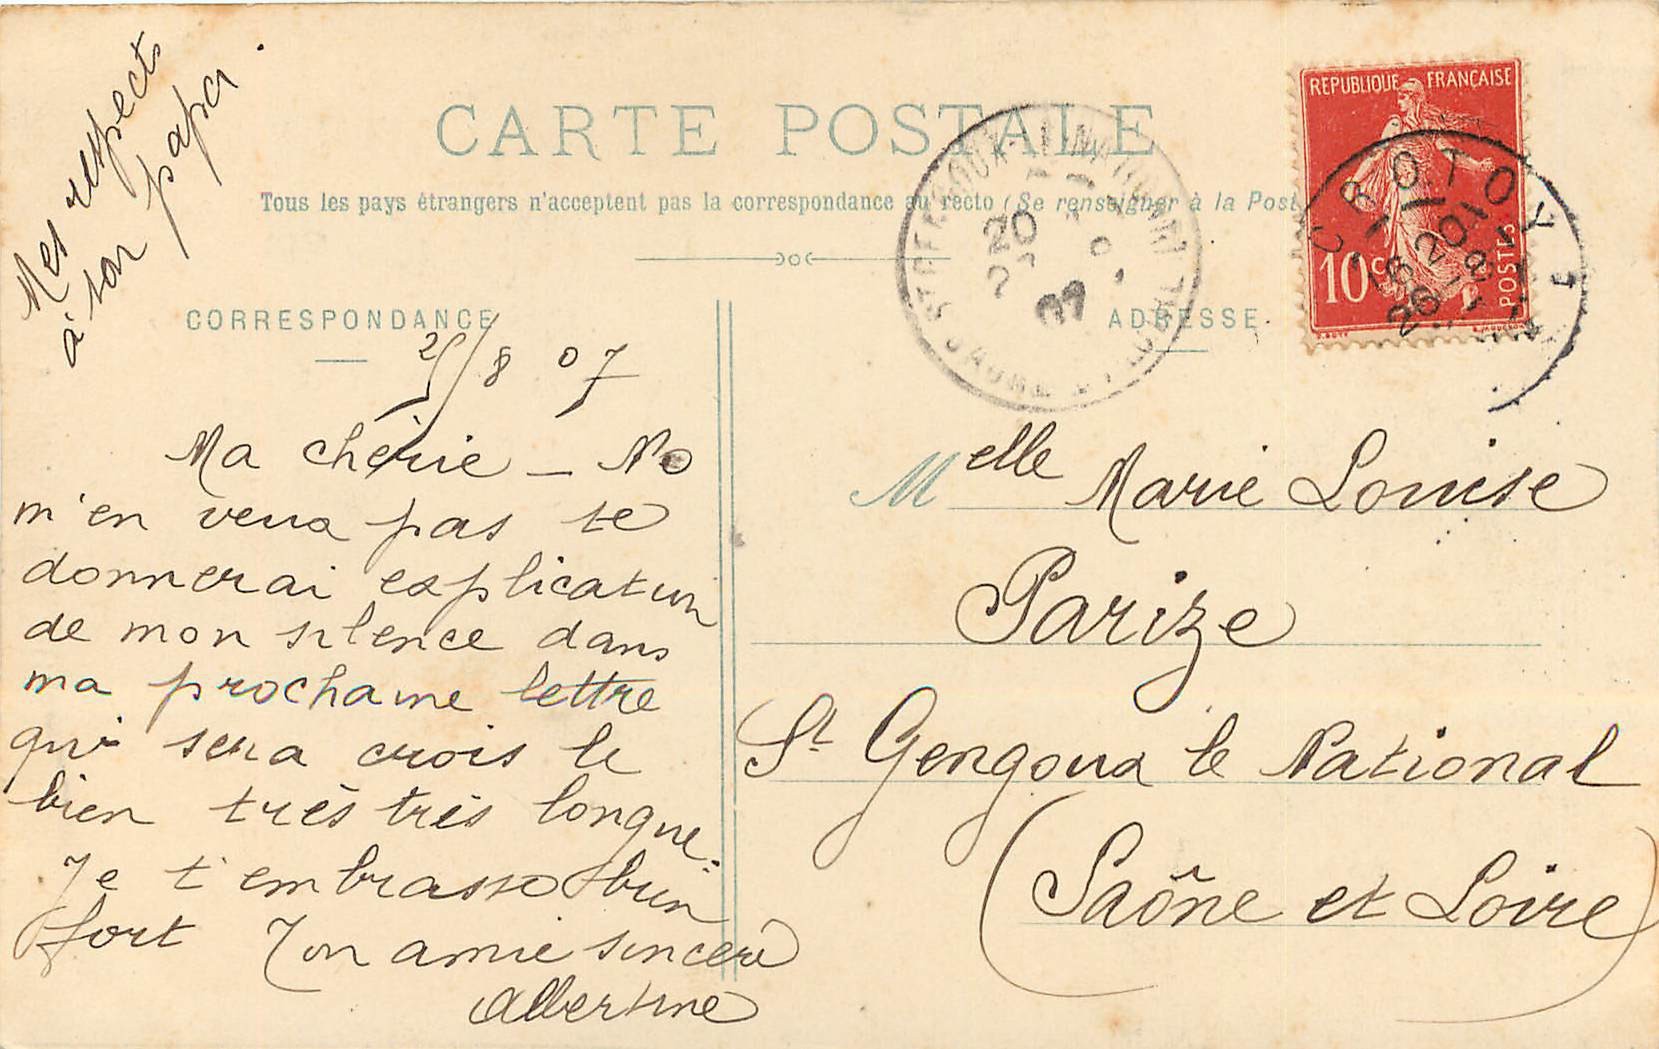 Mes respects
à ton papa.
CARTE POSTALE
Tous les pays étrangers n'acceptent pas la correspondance au recto (Se renseigner à la Post
CORRESPONDANCE
ADRESSE
REPUBLIQUE FRANÇAISE
10 c
POSTES
CROTOY
20
07
SAONE
/8 07
Ma chérie — Ne
m'en veux pas te
donnerai explication
de mon silence dans
ma prochaine lettre
qui sera crois le
bien très très longue.
Je t'embrasse bien
fort Ton amie sincère
Albertine
Melle Marie Louise
Parize
St Gengoux le National
(Saône et Loire)